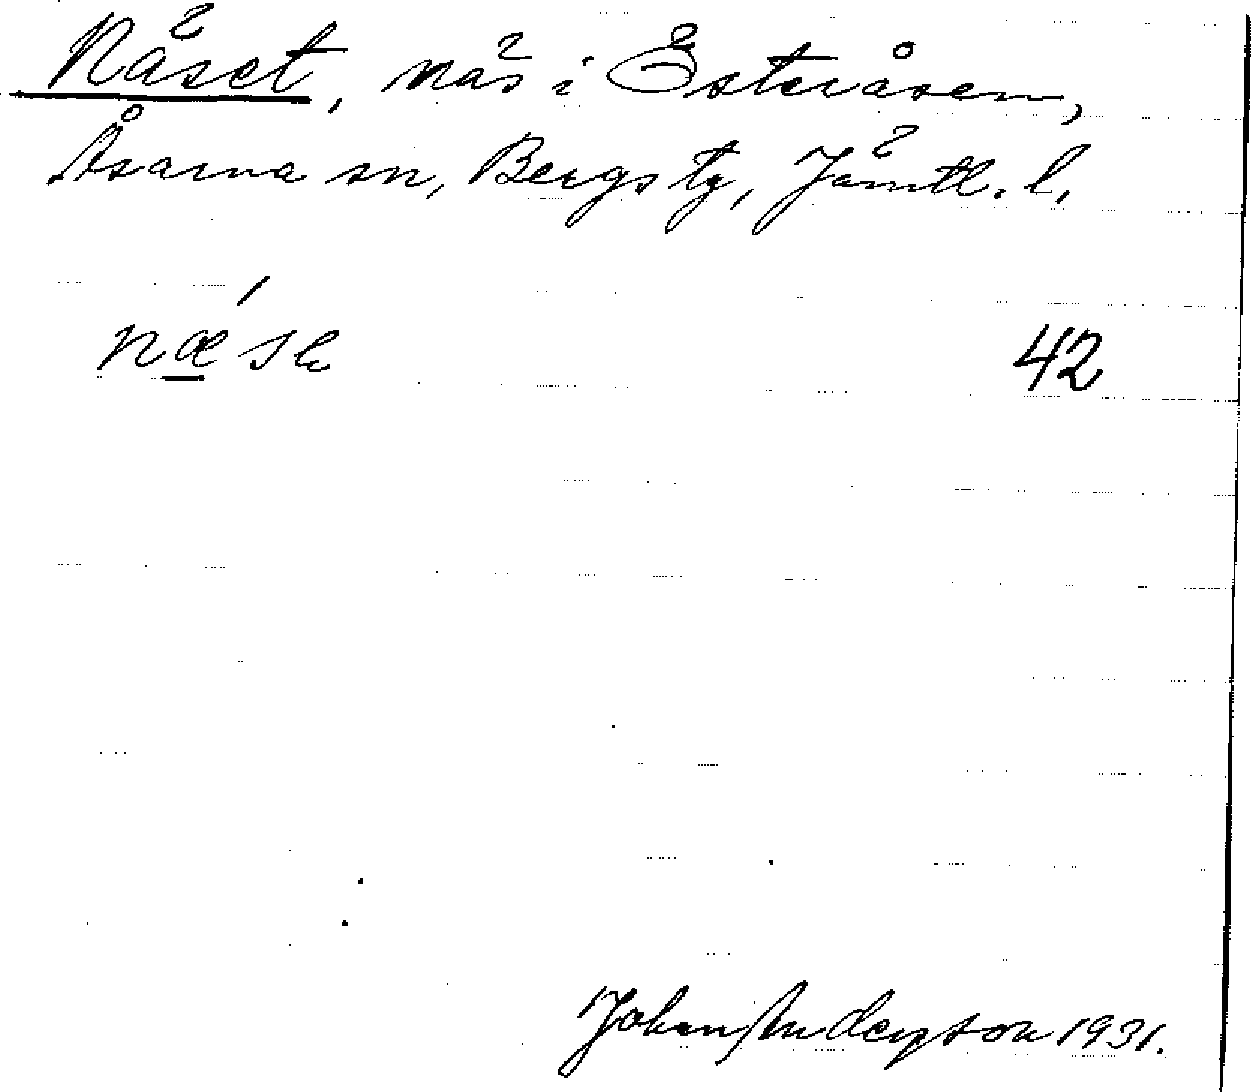 Näset, näs i Österåsen,
Åsarna sn, Bergs tg, Jämtl. l.
næ´sə 42
Johan Anderson 1931.